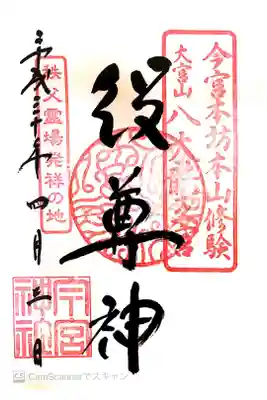 今宮本坊本山修験
大宮山
役尊神
秩父霊場発祥の地
平成三十年四月三日
今宮神社
CamScannerでスキャン